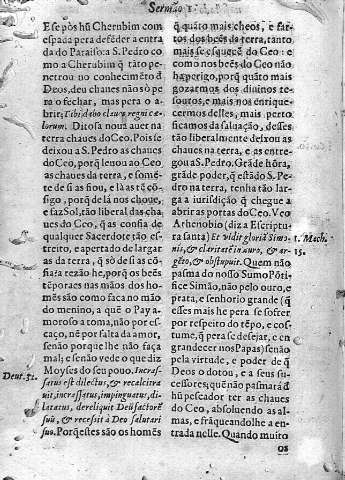 Sermão 1.
E se pòs hũ Cherubim com
espada pera defẽder a entra
da do Paraiso: a S. Pedro co
mo a Cherubim q̃ tãto pe-
netrou no conhecimẽto đ
Deos, deu chaues não sò pe
ra o fechar, mas pera o a-
brir; Tibi dabo claues regni cæ
lorum. Ditosa nouà auer na
terra chaues do Ceo. Pois se
deixou a S. Pedro as chaues
do Ceo, porq̃ leuou ao Ceo
as chaues da terra, e somẽ-
te de si as fiou, e là as tẽ cõ-
sigo, porq̃ de là nos choue,
e faz Sol, tão liberal das cha
ues do Ceo, q̃ as confia de
qualquer Sacerdote; tão es-
treito, e apertado de largar
as da terra, q̃ sò de si as cõ-
fia? a rezão he, porq̃ os beẽs
tẽporaes nas mãos dos ho-
mẽs são como faca no mão
do menino, a quẽ o Pay a-
moroso a toma, não por es-
caço, nẽ por falta da amor,
senão porque lhe não faça
mal; e senão vede o que diz
Moyses do seu pouo. Incras-
Deut. 32.
satus est dilectus, & recalcitra
uit, incrassatus, impinguatus, di-
latatus, dereliquit Deũ factorẽ
suũ, & recessit à Deo salutari
suo. Porq̃ estes são os homẽs
q̃ quãto mais cheos, e far-
tos dos beẽs da terra, tanto
mais se esquecẽ do Ceo: e
como nos beẽs do Ceo não
ha perigo, porq̃ quãto mais
gozarmos dos diuinos te-
souros, e mais nos enrique-
cermos delles, mais perto
ficamos da saluação, desses
tão liberalmente deixou as
chaues na terra, e as entre-
gou a S. Pedro. Grãde hõra,
grãde poder, q̃ estãdo S. Pe-
dro na terra, tenha tão lar-
ga a iurisdição q̃ chegue a
abrir as portas do Ceo. Veo
Athenobio (diz a Escriptu-
ra santa) Et vidit gloriã Simo-
1. Mach.
nis, & claritatẽ in auro, & ar-
15.
gẽto, & obstupuit. Quem não
pasma do nosso Sumo Põti-
fice Simão, não pelo ouro, e
prata, e senhorio grande (q̃
esses mais he pera se sofrer
por respeito do tẽpo, e cos-
tume, q̃ pera se desejar, e en
grandecer nos Papas) senão
pela virtude, e poder de q̃
Deos o dotou, e a seus su-
cessores; que não pasmarà đ
hũ pescador ter as chaues
do Ceo, absoluendo as al-
mas, e frãqueandolhe a en-
trada nelle. Quando muito
os